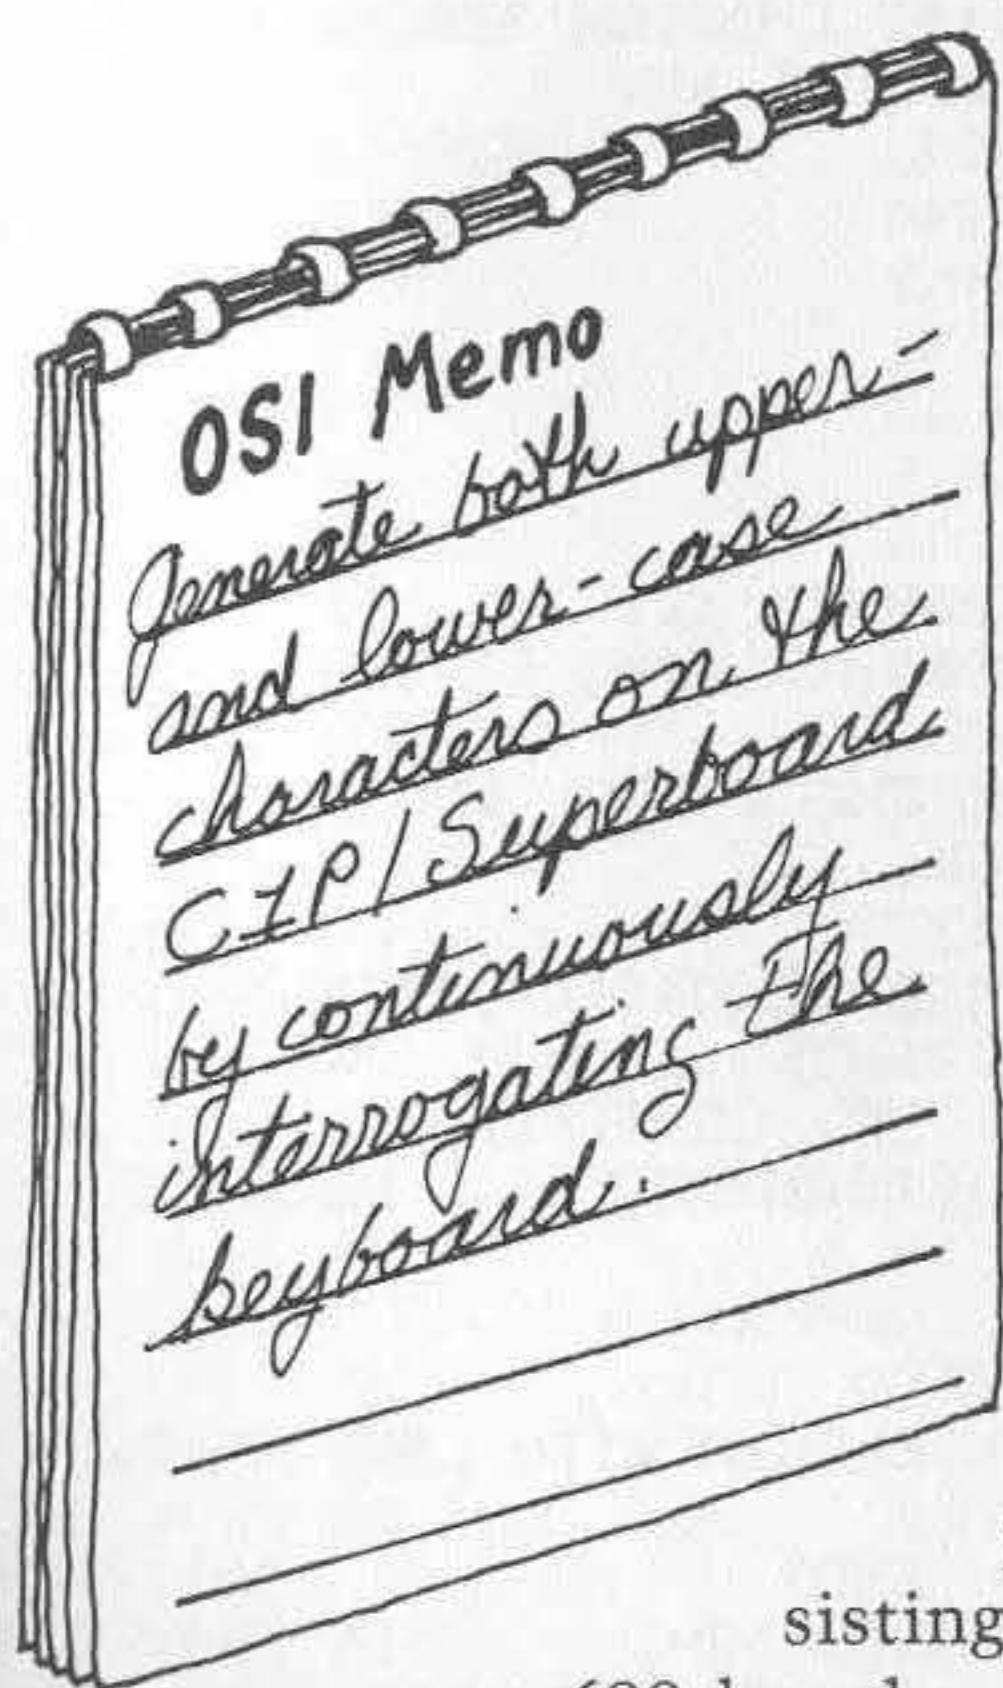 OSI Memo
Generate both upper-
and lower-case
characters on the
C1P/Superboard
by continuously
interrogating the
keyboard.
sisting